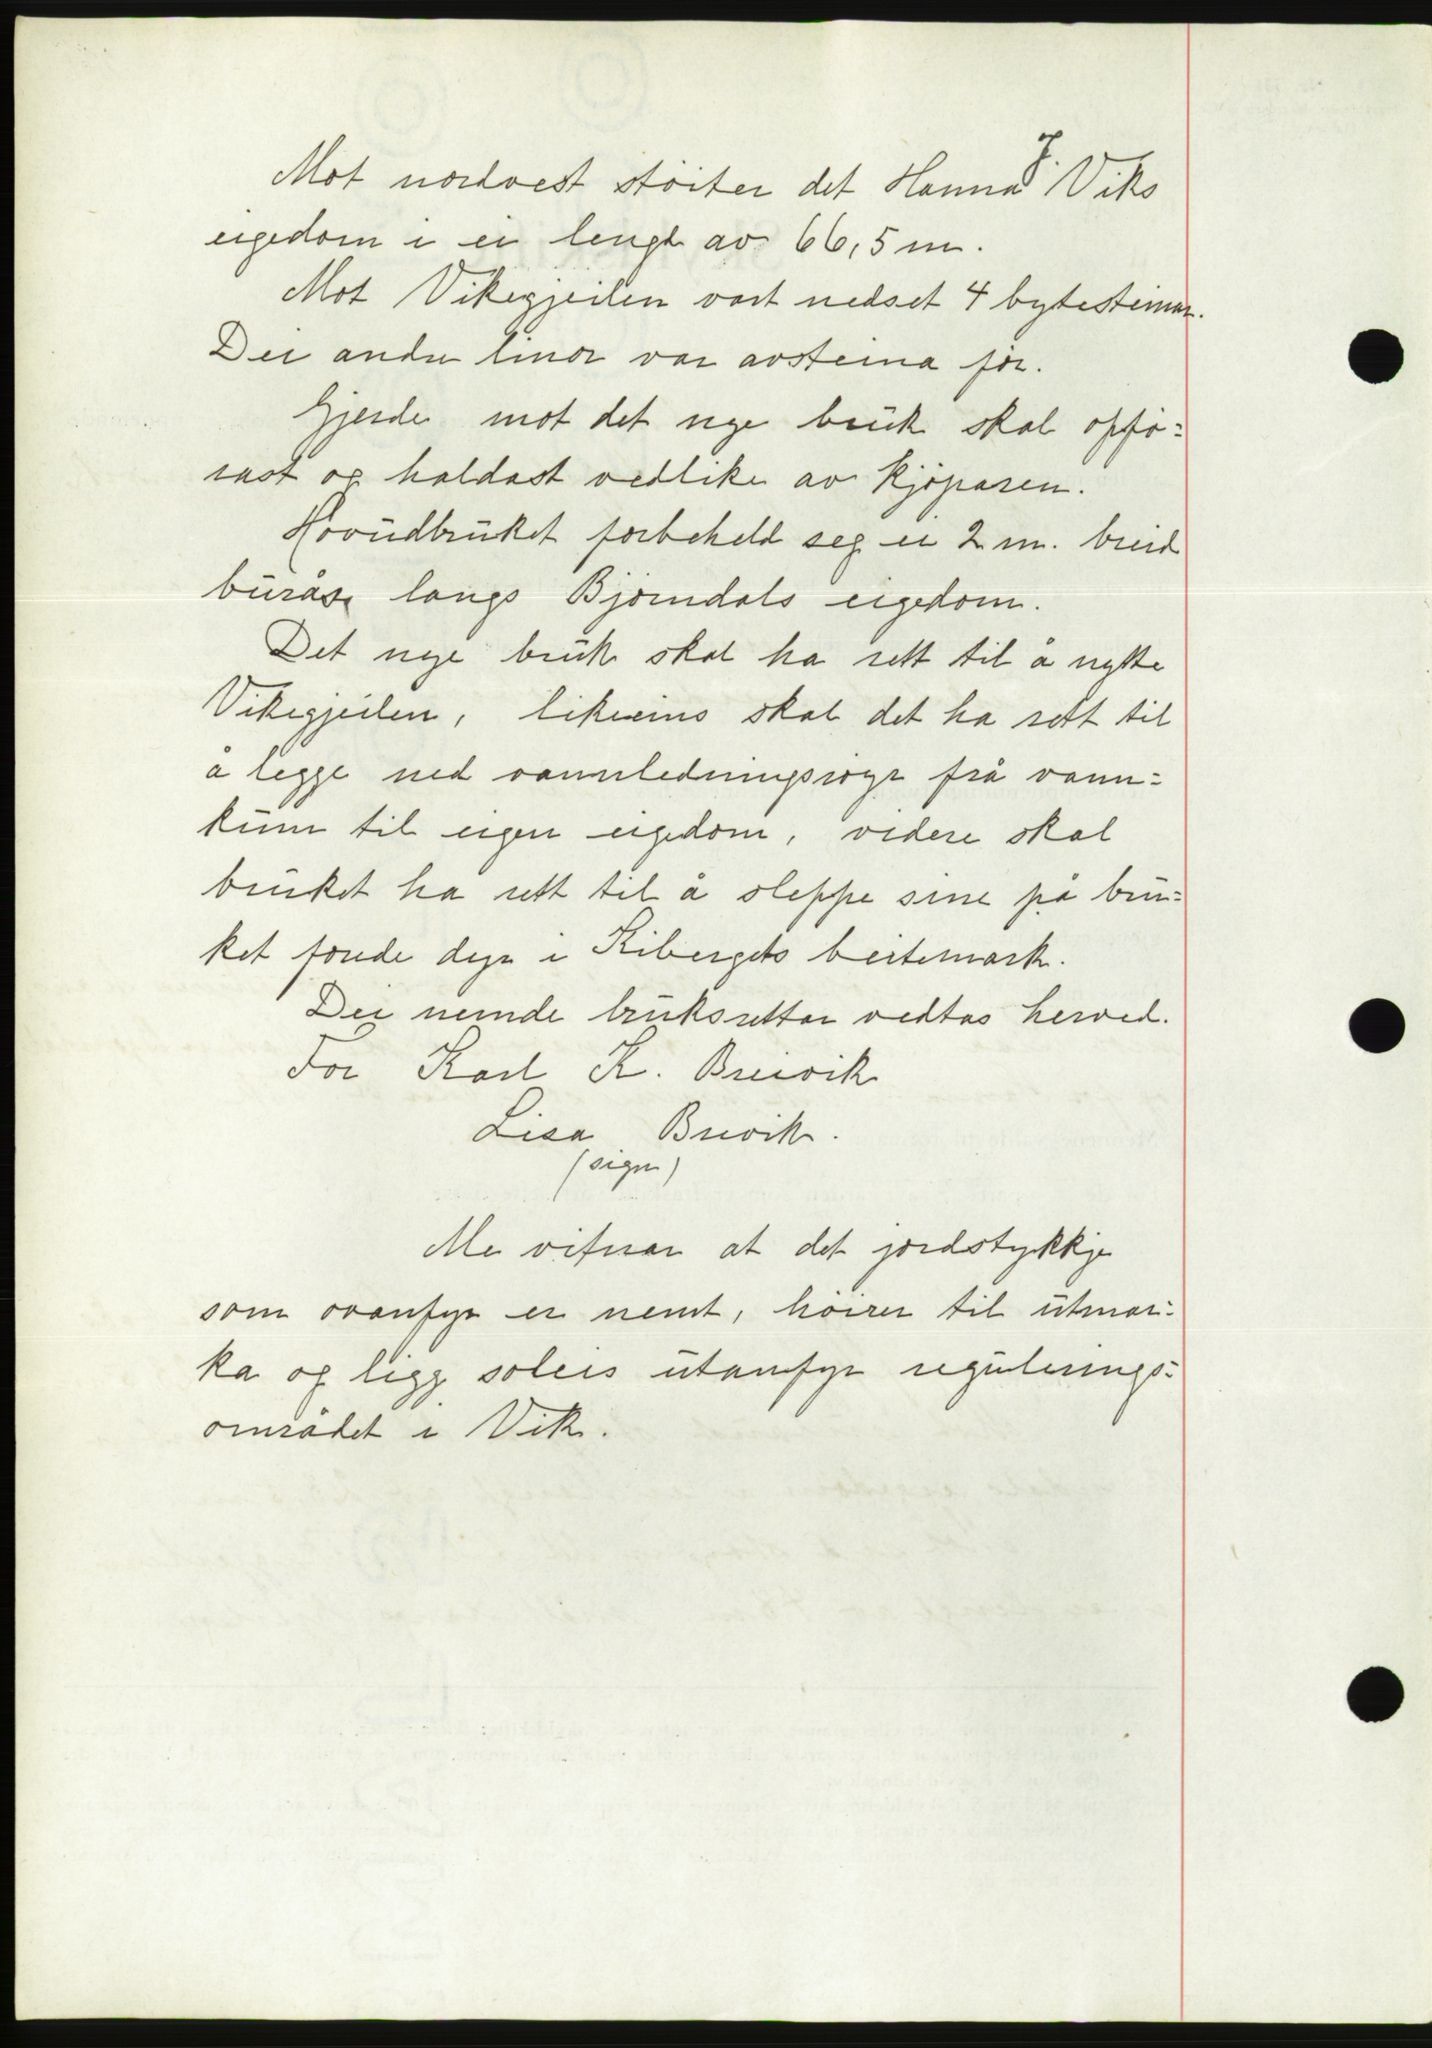 Mot nordvest stöiter det Hanna J. Viks
eigedom i ei lengd av 66,5 m.
Mot Vikegjeilen vart nedset 4 bytesteinar.
Dei andre linor var avsteina før.
Gjerde mot det nye bruk skal opfø-
rast og haldast vedlike av kjøparen.
Hovudbruket forbeheld seg ei 2 m. breid
burås langs Bjørndals eigedom.
Det nye bruk skal ha rett til å nytte
Vikegjeilen, likeeins skal det ha rett til
å legge ned vannledningsrøyr frå vann-
kum til eigen eigedom, videre skal
bruket ha rett til å sleppe sine på bru-
ket forede dyr i Kibergets beitemark.
Dei nemde bruksrettar vedtas herved.
For Karl K. Breivik
Lisa Breivik.
(sign)
Me vitnar at det jordstykkje
som ovanfyr er nemt, höirer til utmar-
ka og ligg soleis utanfyr regulerings-
området i Vik.